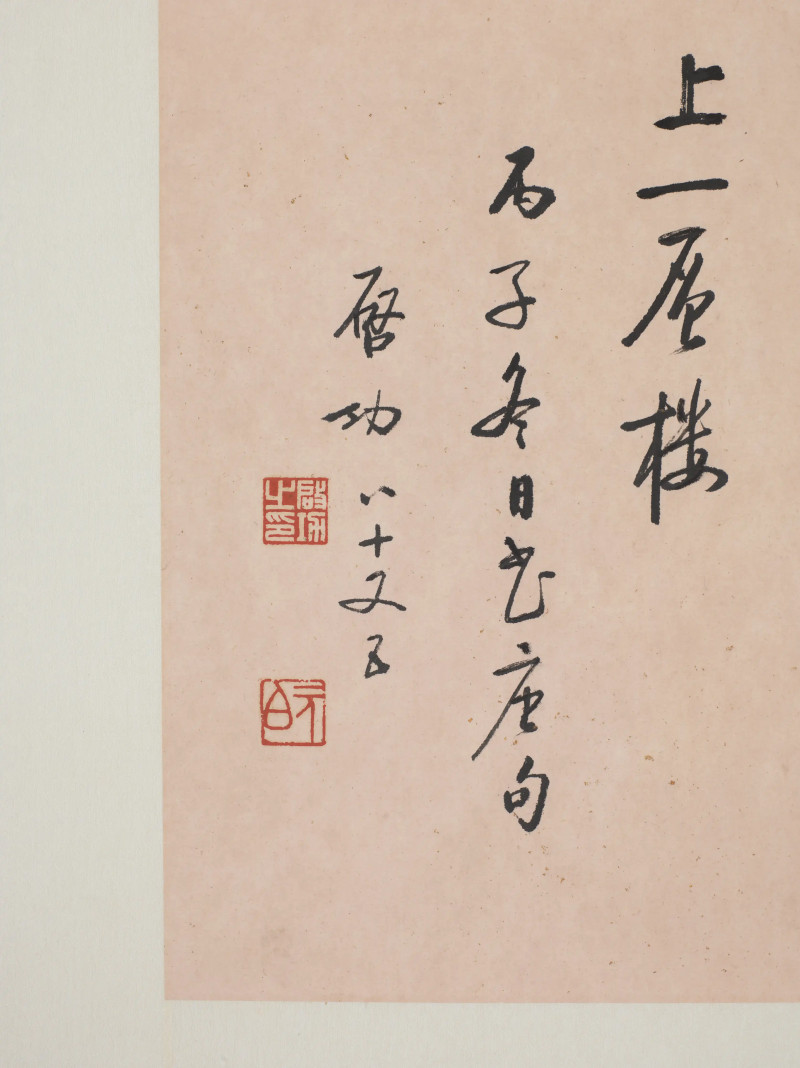 上一層楼
丙子冬日書唐句
啓功八十又五
啟功之印
元白